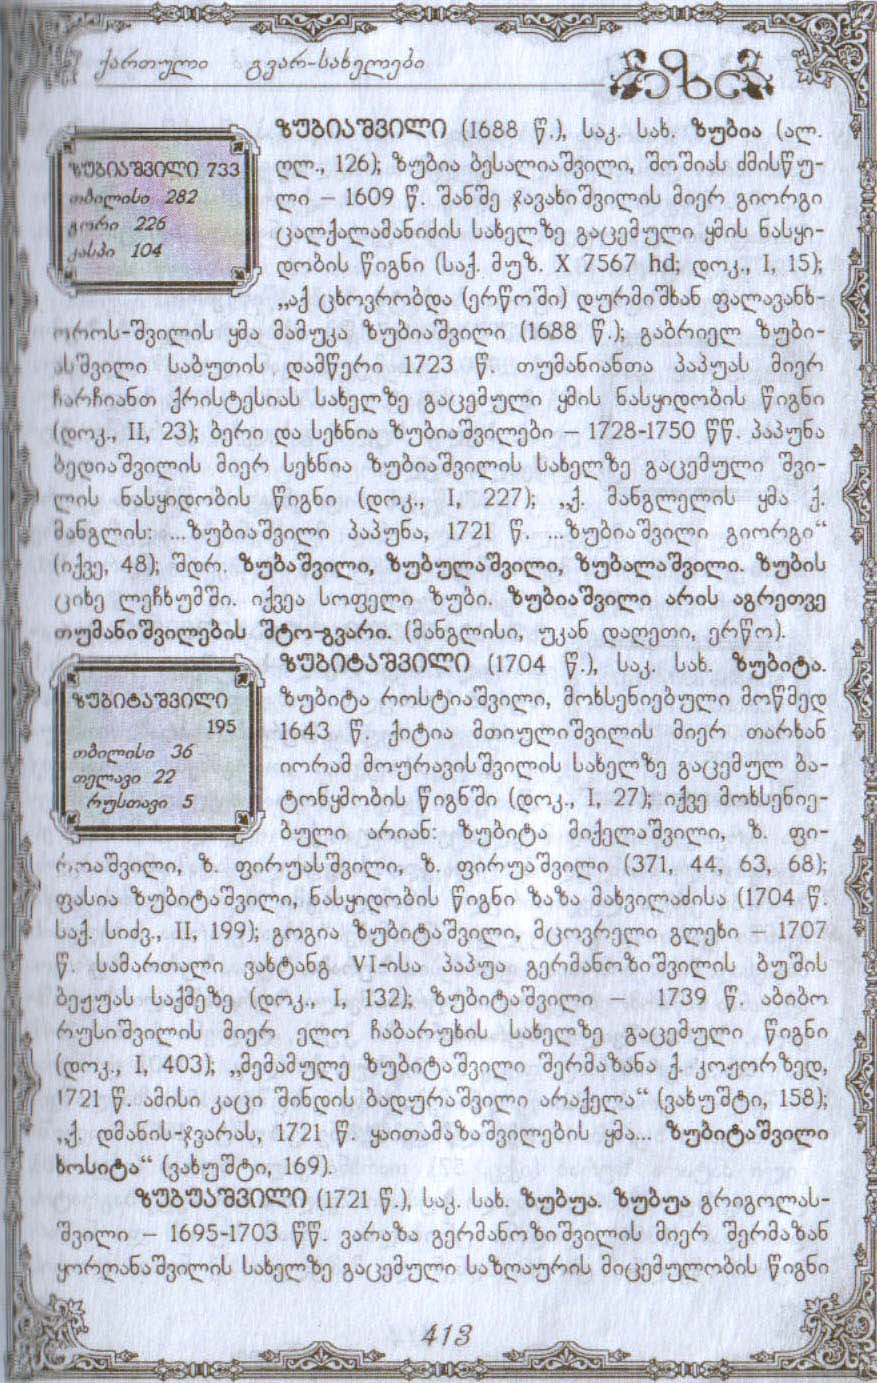 ქართული გვარ-სახელები
ზ
ზუბიაშვილი 733
თბილისი 282
გორი 226
კასპი 104
ზუბიაშვილი (1688 წ.), საკ. სახ. ზუბია (ალ.
ღლ., 126); ზუბია ბესალიაშვილი, შოშიას ძმისწუ-
ლი – 1609 წ. შანშე ჯავახიშვილის მიერ გიორგი
ცალქალამანიძის სახელზე გაცემული ყმის ნასყი-
დობის წიგნი (საქ. მუზ. X 7567 hd; დოკ., I, 15);
„აქ ცხოვრობდა (ერწოში) დურმიშხან ფალავანხ-
ოროს-შვილის ყმა მამუკა ზუბიაშვილი (1688 წ.); გაბრიელ ზუბი-
აშვილი საბუთის დამწერი 1723 წ. თუმანიანთა პაპუას მიერ
ჩარჩიანთ ქრისტესიას სახელზე გაცემული ყმის ნასყიდობის წიგნი
(დოკ., II, 23); ბერი და სეხნია ზუბიაშვილები – 1728-1750 წწ. პაპუნა
ბედიაშვილის მიერ სეხნია ზუბიაშვილის სახელზე გაცემული შვი-
ლის ნასყიდობის წიგნი (დოკ., I, 227); „ქ. მანგლელის ყმა ქ.
მანგლის: ...ზუბიაშვილი პაპუნა, 1721 წ. ...ზუბიაშვილი გიორგი“
(იქვე, 48); შდრ. ზუბაშვილი, ზუბულაშვილი, ზუბალაშვილი. ზუბის
ციხე ლეჩხუმში. იქვეა სოფელი ზუბი. ზუბიაშვილი არის აგრეთვე
თუმანიშვილების შტო-გვარი. (მანგლისი, უკან დაღეთი, ერწო).
ზუბიტაშვილი
195
თბილისი 36
თელავი 22
რუსთავი 5
ზუბიტაშვილი (1704 წ.), საკ. სახ. ზუბიტა.
ზუბიტა როსტიაშვილი, მოხსენიებული მოწმედ
1643 წ. ქიტია მთიულიშვილის მიერ თარხან
იორამ მოურავისშვილის სახელზე გაცემულ ბა-
ტონყმობის წიგნში (დოკ., I, 27); იქვე მოხსენიე-
ბული არიან: ზუბიტა მიქელაშვილი, ზ. ფი-
როაშვილი, ზ. ფირუასშვილი, ზ. ფირუაშვილი (371, 44, 63, 68);
ფასია ზუბიტაშვილი, ნასყიდობის წიგნი ზაზა მახვილაძისა (1704 წ.
საქ. სიძვ., II, 199); გოგია ზუბიტაშვილი, მცოვრელი გლეხი – 1707
წ. სამართალი ვახტანგ VI-ისა პაპუა გერმანოზიშვილის ბუშის
ბეჟუას საქმეზე (დოკ., I, 132); ზუბიტაშვილი – 1739 წ. აბიბო
რუსიშვილის მიერ ელო ჩაბარუხის სახელზე გაცემული წიგნი
(დოკ., I, 403); „მემამულე ზუბიტაშვილი შერმაზანა ქ. კოჟორზედ,
1721 წ. ამისი კაცი შინდის ბადურაშვილი არაქელა“ (ვახუშტი, 158);
„ქ. დმანის-ჯვარას, 1721 წ. ყაითამაზაშვილების ყმა... ზუბიტაშვილი
ხოსიტა“ (ვახუშტი, 169).
ზუბუაშვილი (1721 წ.), საკ. სახ. ზუბუა. ზუბუა გრიგოლას-
შვილი – 1695-1703 წწ. ვარაზა გერმანოზიშვილის მიერ შერმაზან
ყორღანაშვილის სახელზე გაცემული საზღაურის მიცემულობის წიგნი
413